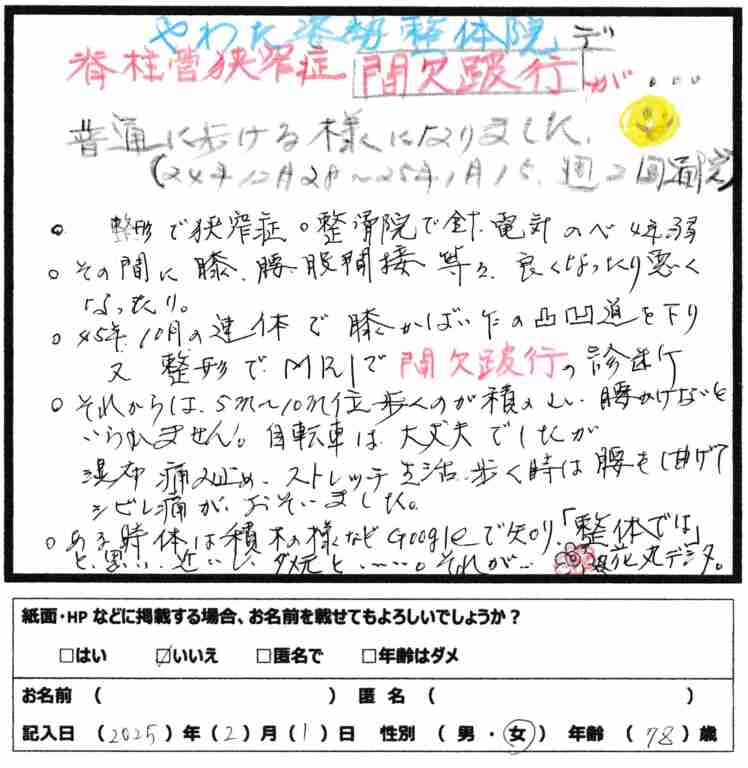 やわた 整体院デ
脊柱管狭窄症 間欠跛行が...
普通に歩ける様になりました。
(24年12月28〜25年1月15. 週2回通院)
○ 整形で狭窄症。整骨院で 電気 のべ4年弱
○ その間に膝、腰、股関接 等々、良くなったり悪く
なったり。
○ 45年10月の連休で膝かばい の凸凹道を下り
又 整形でMRIで間欠跛行の診断
○ それからは、5m〜10m位歩くのが 腰かけないと
いられません。自転車は大丈夫でしたが
湿布 痛み止め、ストレッチ生活 歩く時は腰も曲げて
シビレ痛がおそいました。
○ ある時体は積木の様などGoogleで知り、「整体では」
と思い 近いし ダメ元と……。それが… 花丸デシタ。
紙面・HPなどに掲載する場合、お名前を載せてもよろしいでしょうか？
□はい ☑いいえ □匿名で □年齢はダメ
お名前 ( ) 匿名 ( )
記入日 (2025)年(2)月(1)日 性別 (男・女) 年齢 (78)歳